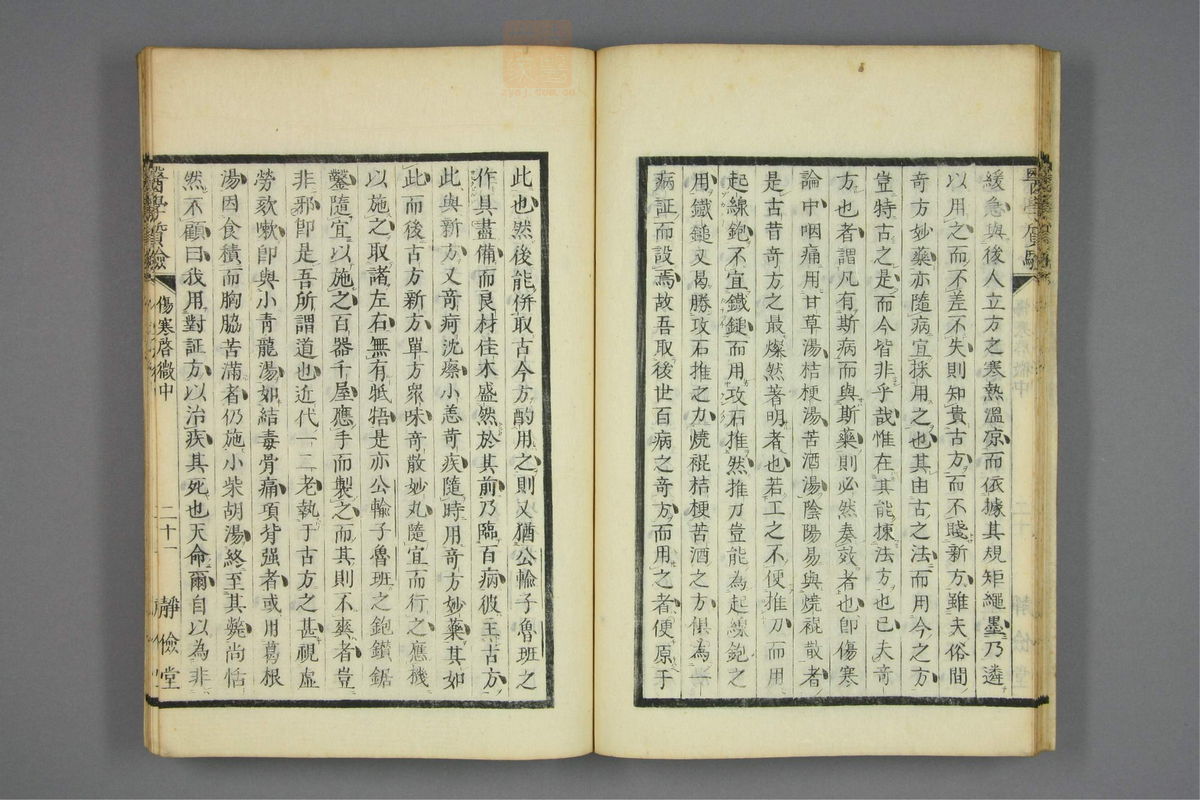 緩急與後人立方之寒熱溫凉而依據其規矩繩墨乃遴
以用之而不差不失則知貴古方而不賤新方雖夫俗間
奇方妙藥亦隨病宜採用之也其由古之法而用今之方
豈特古之是而今皆非乎哉惟在其能揀法方也已夫奇
方也者謂凡有斯病而與斯藥則必然奏效者也卽傷寒
論中咽痛用甘草湯桔梗湯苦酒湯陰陽易與燒裩散者
是古昔奇方之最燦然著明者也若工之不便推刀而用
起線鉋不宜鐵鎚而用攻石推然推刀豈能為起線鉋之
用鐵鎚又曷勝攻石推之力燒裩桔梗苦酒之方俱為一
病証而設焉故吾取後世百病之奇方而用之者便原于
此也然後能併取古今方酌用之則又猶公輸子魯班之
作具盡備而良材佳木盛然於其前乃臨百病彼主古方
此與新方又奇痾沈瘵小恙苛疾隨時用奇方妙藥其如
此而後古方新方單方衆味奇散妙丸隨宜而行之應機
以施之取諸左右無有牴牾是亦公輸子魯班之鉋鑽鋸
鑿隨宜以施之百器千屋應手而製之而其則不爽者豈
非邪卽是吾所謂道也近代一二老執于古方之甚視虛
勞欬嗽卽與小青龍湯如結毒骨痛項背强者或用葛根
湯因食積而胸脇苦滿者仍施小柴胡湯終至其斃尚恬
然不顧曰我用對証方以治疾其死也天命爾自以為非
傷寒啓微中
二十一
靜儉堂